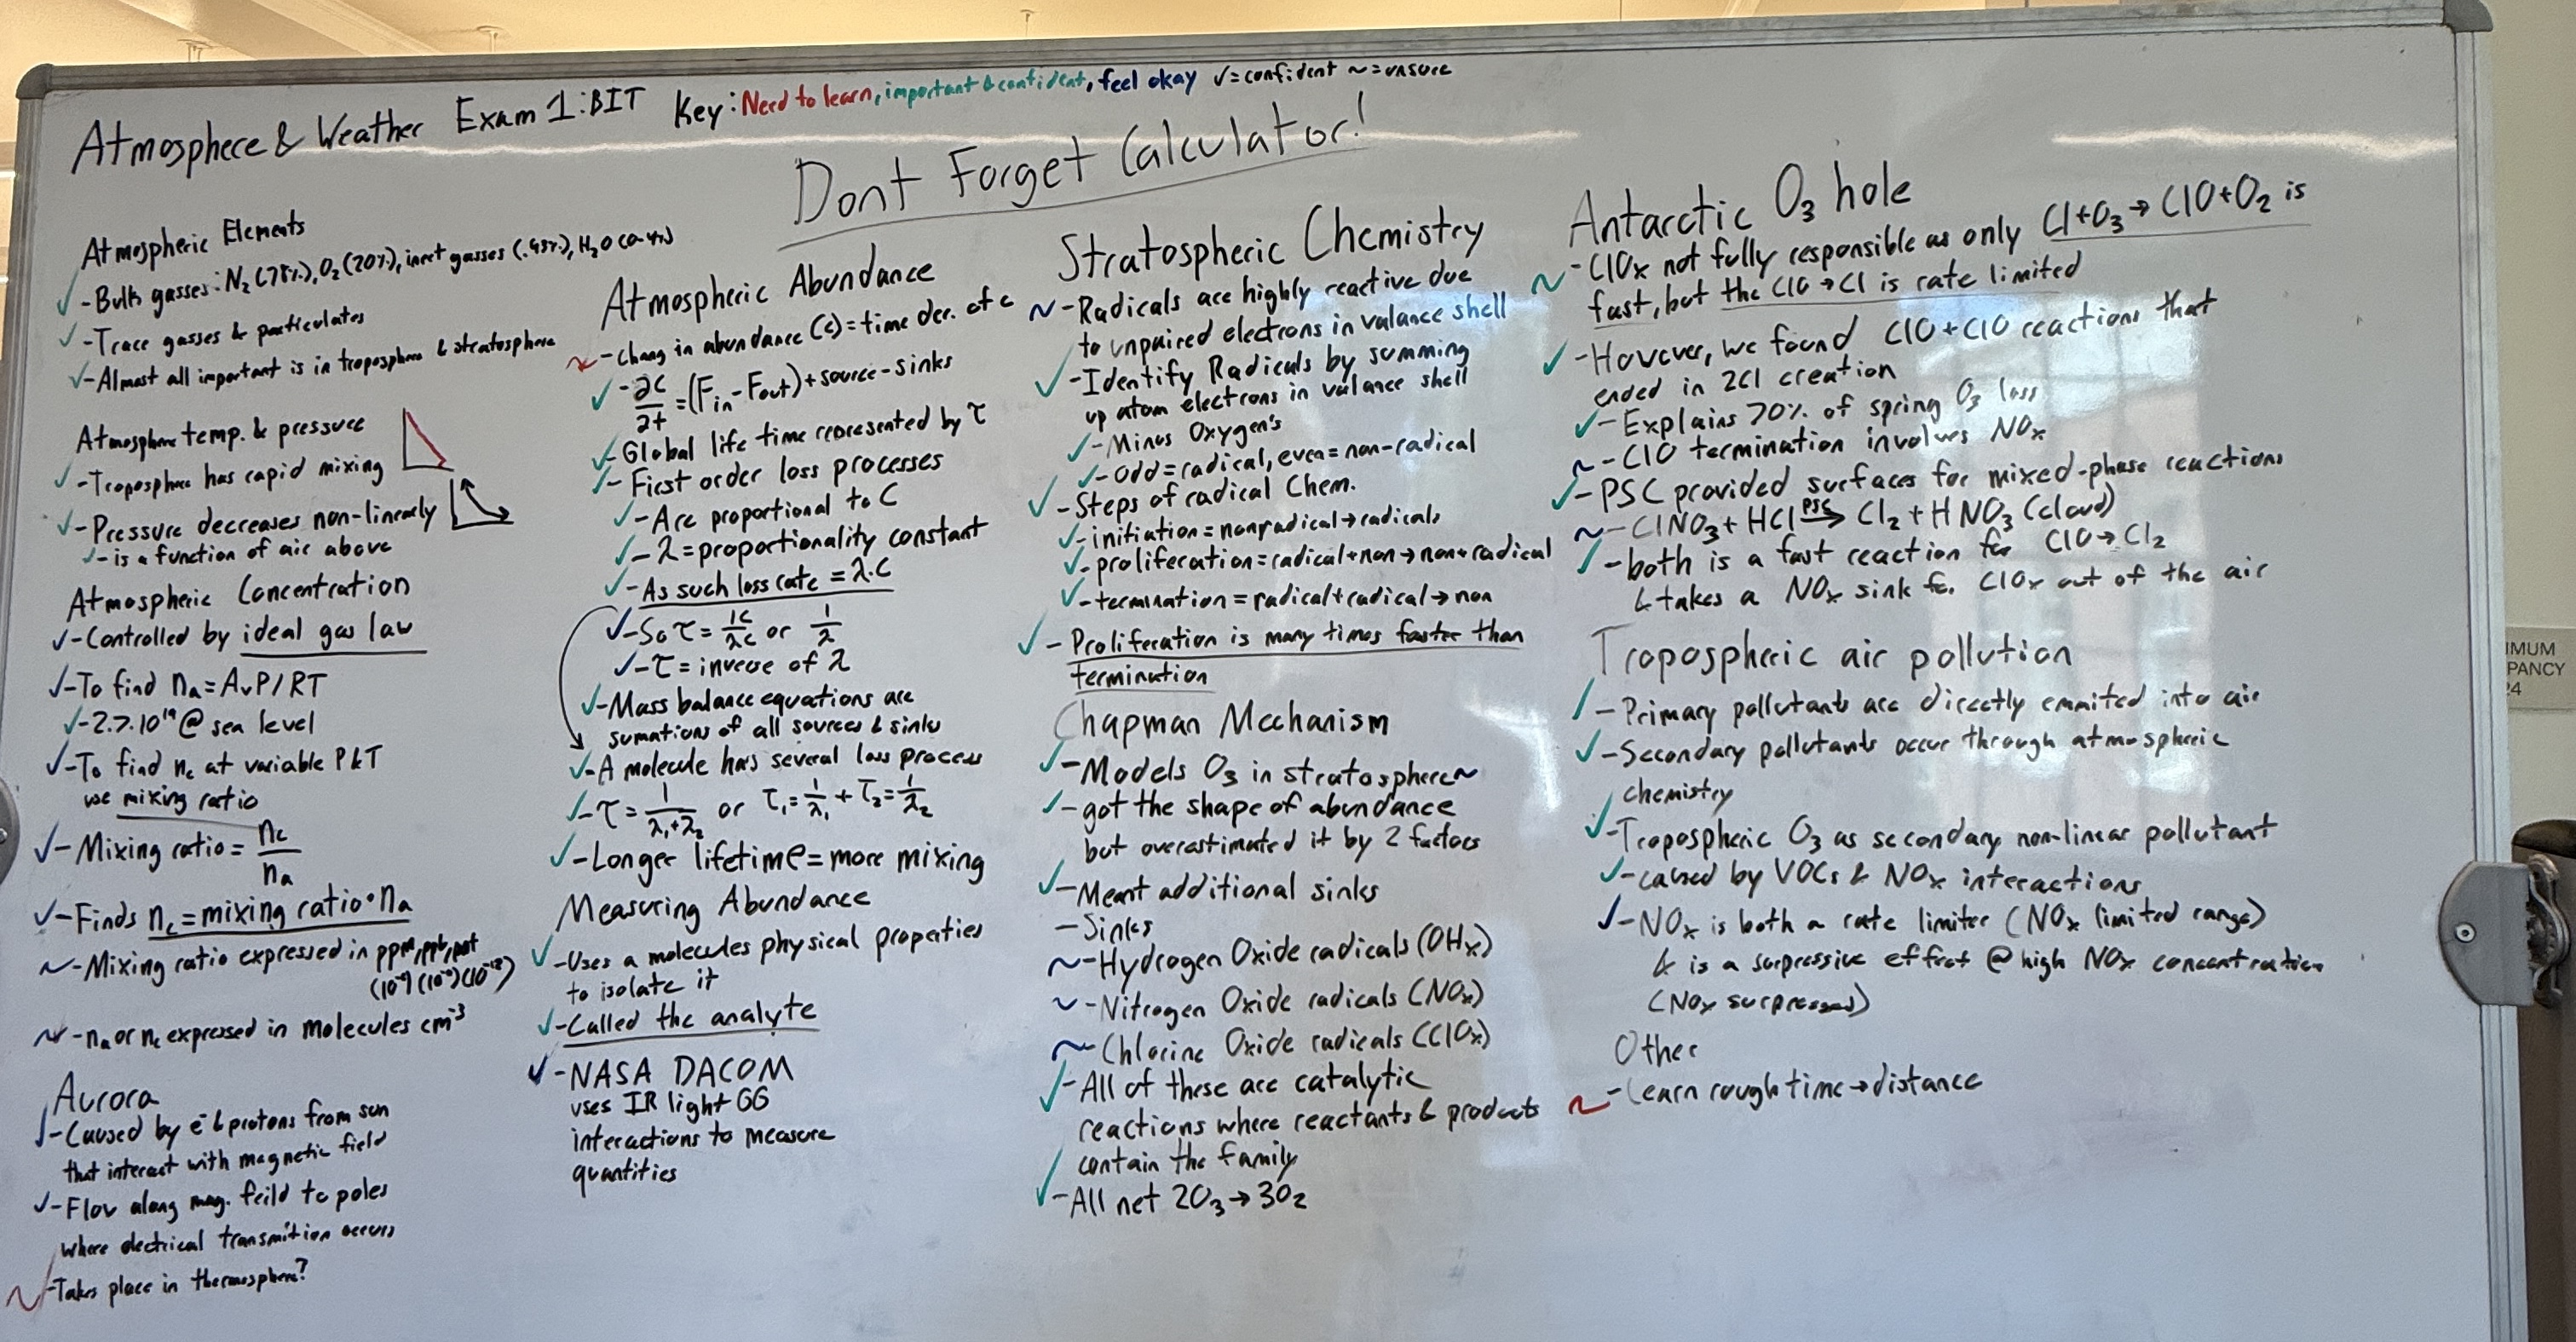 Atmosphere & Weather Exam 1:BIT Key: Need to learn, important & confident, feel okay ✓=confident ~=unsure
Dont Forget Calculator!
Atmospheric Elements
✓-Bulk gasses: N₂(78%), O₂(20%), inert gasses (.93%), H₂O(0-4%)
✓-Trace gasses & particulates
✓-Almost all important is in troposphere & stratosphere
Atmosphere temp. & pressure
✓-Troposphere has rapid mixing
✓-Pressure decreases non-linearly
✓-is a function of air above
Atmospheric Concentration
✓-Controlled by ideal gas law
✓-To find nₐ=AᵥP/RT
✓-2.7·10¹⁹@ sea level
✓-To find n꜀ at variable P&T
use mixing ratio
✓-Mixing ratio= n꜀/nₐ
✓-Finds n꜀=mixing ratio·nₐ
~-Mixing ratio expressed in ppm,ppb,ppt
(10⁻⁶)(10⁻⁹)(10⁻¹²)
~-nₐ or n꜀ expressed in molecules cm⁻³
Aurora
✓-Caused by e⁻ & protons from sun
that interact with magnetic field
✓-Flow along mag. feild to poles
where electrical transmition occurs
~-Takes place in thermosphere?
Atmospheric Abundance
~-Chang in abundance (c)=time der. of c
✓-∂C/∂t=(Fin-Fout)+source-sinks
✓-Global life time represented by τ
✓-First order loss processes
✓-Are proportional to C
✓-λ=proportionality constant
✓-As such loss rate=λ·C
✓-So τ=1C/λC or 1/λ
✓-τ=inverse of λ
✓-Mass balance equations are
sumations of all sources & sinks
✓-A molecule has several loss process
✓-τ=1/λ₁+λ₂ or τ₁=1/λ₁+τ₂=1/λ₂
✓-Longer lifetime=more mixing
Measuring Abundance
✓-Uses a molecules physical properties
to isolate it
✓-Called the analyte
✓-NASA DACOM
uses IR light GG
interactions to measure
quantities
Stratospheric Chemistry
~-Radicals are highly reactive due
to unpaired electrons in valance shell
✓-Identify Radicals by summing
up atom electrons in valance shell
✓-Minus Oxygen's
✓-odd=radical, even=non-radical
✓-Steps of radical Chem.
✓-initiation=nonradical→radicals
✓-proliferation=radical+non→non+radical
✓-termination=radical+radical→non
✓-Proliferation is many times faster than
termination
Chapman Mechanism
✓-Models O₃ in stratosphere~
✓-got the shape of abundance
but overestimated it by 2 factors
✓-Meant additional sinks
-Sinks
~-Hydrogen Oxide radicals (OHx)
~-Nitrogen Oxide radicals (NOx)
~-Chlorine Oxide radicals (ClOx)
✓-All of these are catalytic
reactions where reactants & products
contain the family
✓-All net 2O₃→3O₂
Antarctic O₃ hole
~-ClOx not fully responsible as only Cl+O₃→ClO+O₂ is
fast, but the ClO→Cl is rate limited
✓-However, we found ClO+ClO reactions that
ended in 2Cl creation
✓-Explains 70% of spring O₃ loss
~-ClO termination involves NOx
✓-PSC provided surfaces for mixed-phase reactions
~-ClNO₃+HCl PSC→ Cl₂+HNO₃(cloud)
✓-both is a fast reaction for ClO→Cl₂
& takes a NOx sink for ClOx out of the air
Tropospheric air pollution
✓-Primary pollutants are directly emmited into air
✓-Secondary pollutants occur through atmospheric
chemistry
✓-Tropospheric O₃ as secondary non-linear pollutant
✓-caused by VOCs & NOx interactions
✓-NOx is both a rate limiter (NOx limited range)
& is a surpressive effect @ high NOx concentration
(NOx surpressed)
Other
~-Learn rough time→distance
IMUM
PANCY
24